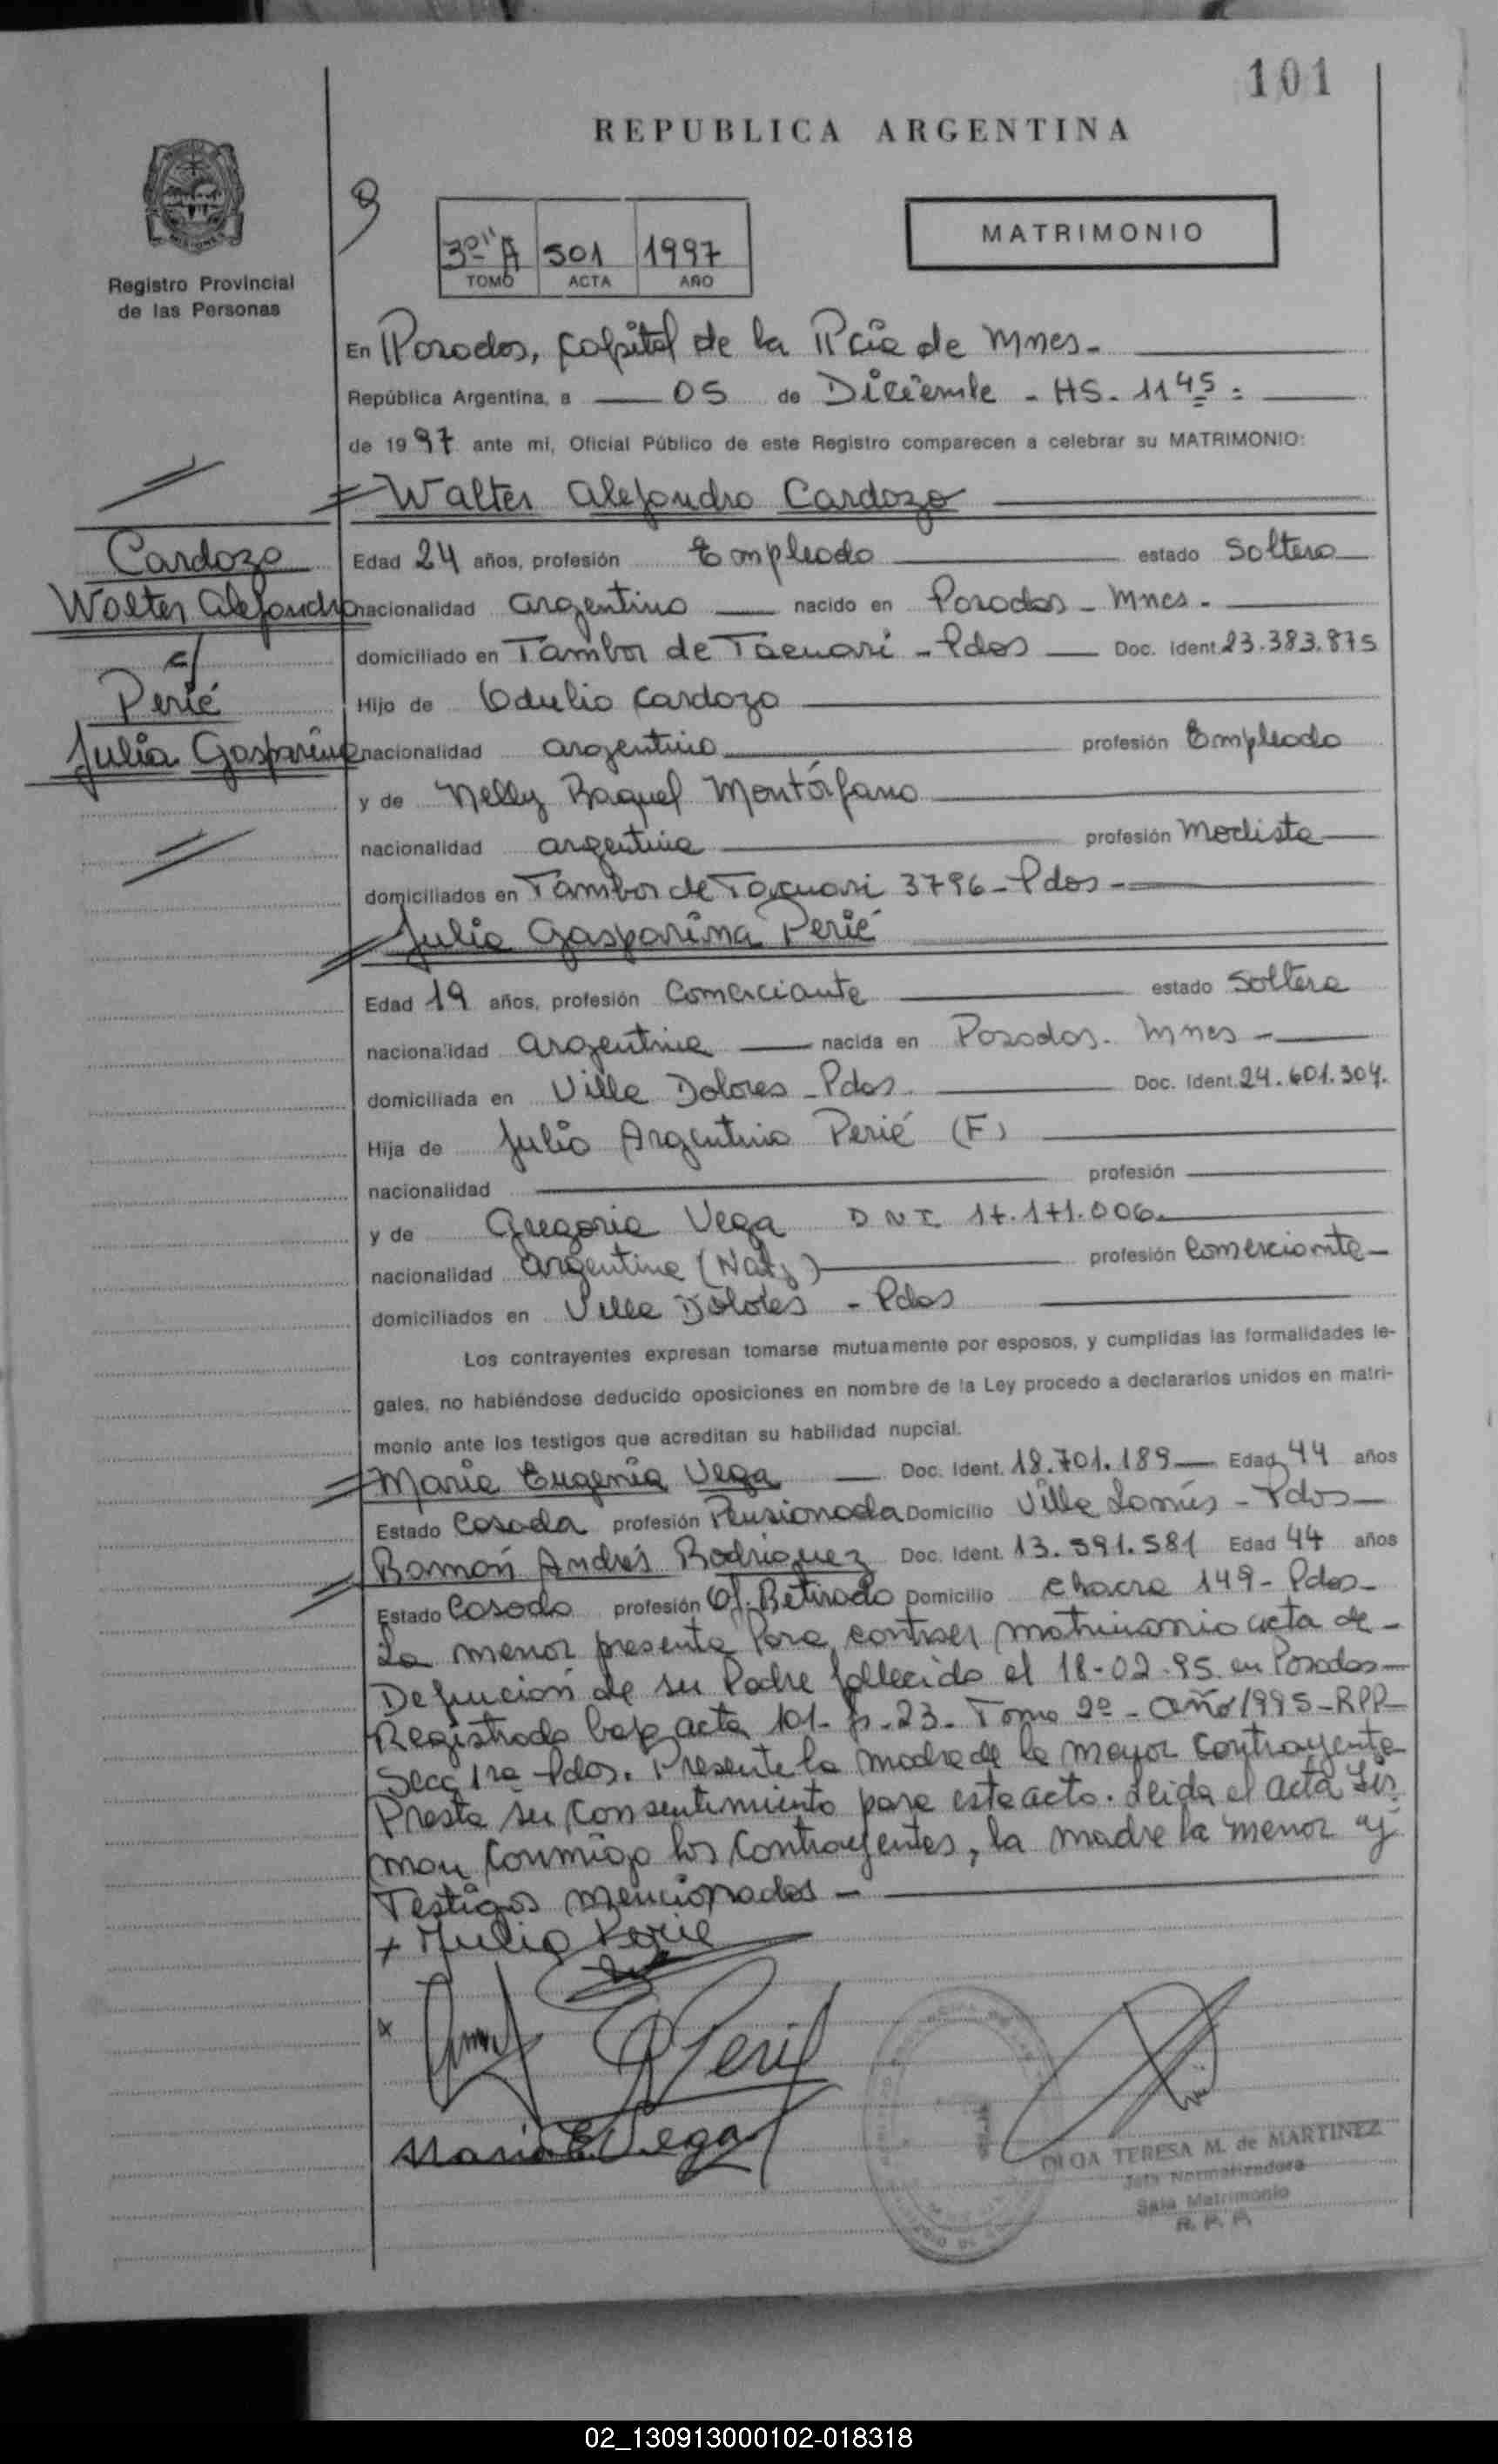 101
REPUBLICA ARGENTINA
MISIONES
Registro Provincial
de las Personas
3º "A" 501 1997
TOMO ACTA AÑO
MATRIMONIO
En Posadas, Capital de la Pcia de Mnes.-
República Argentina, a 05 de Diciembre - HS. 11 45 =
de 1997 ante mi, Oficial Público de este Registro comparecen a celebrar su MATRIMONIO:
Walter Alejandro Cardozo
Cardozo
Walter Alejandro
c/
Perié
Julia Gasparina
Edad 24 años, profesión Empleado estado Soltero
nacionalidad argentino nacido en Posadas - Mnes.-
domiciliado en Tambor de Tacuari - Pdas Doc. Ident. 23.383.875
Hijo de Odulio Cardozo
nacionalidad argentino profesión Empleado
y de Nelly Raquel Montórfano
nacionalidad argentina profesión Modista
domiciliados en Tambor de Tacuari 3796 - Pdas -
Julia Gasparina Perié
Edad 19 años, profesión Comerciante estado Soltera
nacionalidad argentina nacida en Posadas. Mnes -
domiciliada en Villa Dolores - Pdas. Doc. Ident. 24.601.304.
Hija de Julio Argentino Perié (F)
nacionalidad profesión
y de Gregoria Vega DNI 17.171.006.
nacionalidad argentina (Natz) profesión Comerciante
domiciliados en Villa Dolores - Pdas
Los contrayentes expresan tomarse mutuamente por esposos, y cumplidas las formalidades le-
gales, no habiéndose deducido oposiciones en nombre de la Ley procedo a declararlos unidos en matri-
monio ante los testigos que acreditan su habilidad nupcial.
Maria Eugenia Vega Doc. Ident. 18.701.189 Edad 44 años
Estado Casada profesión Pensionada Domicilio Villa Lanús - Pdas
Ramón Andrés Rodriguez Doc. Ident. 13.591.581 Edad 44 años
Estado Casado profesión Of. Retirado Domicilio Chacra 149 - Pdas -
La menor presenta para contraer matrimonio acta de -
Defunción de su Padre fallecido el 18-02-95 en Posadas -
Registrado bajo acta 101- fº-23- Tomo 2º - año 1995 - RPP -
Secc 1ra Pdas. Presente la madre de la menor contrayente
Presta su consentimiento para este acto. Leida el acta fir
man conmigo los contrayentes, la madre la menor y
Testigos mencionados -
+ Julia Perie
x
G Perié
Maria E Vega
OLGA TERESA M. de MARTINEZ
Jefa Normatizadora
Sala Matrimonio
R. P. P.
02_130913000102-018318